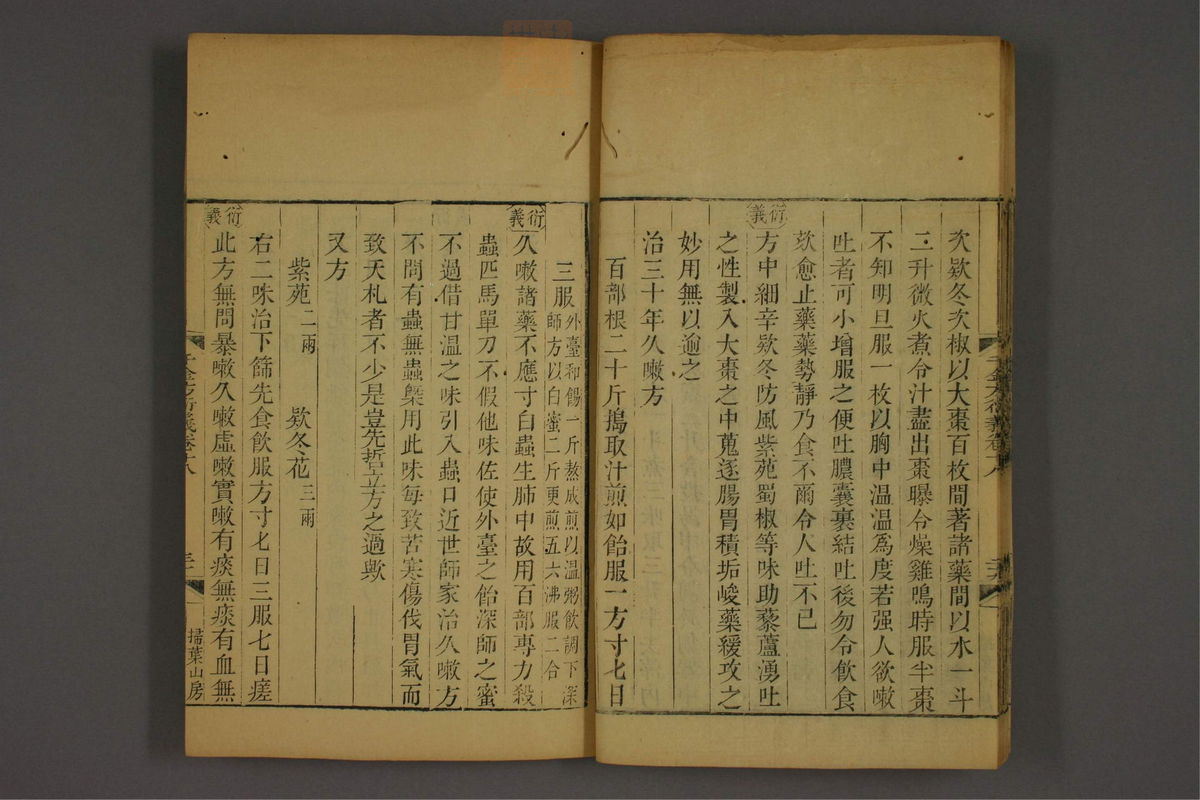 次欵冬次椒以大棗百枚間著諸藥間以水一斗
二升微火煮令汁盡出棗曝令燥雞鳴時服半棗
不知明旦服一枚以胸中温温爲度若强人欲嗽
吐者可小增服之便吐膿囊裹結吐後勿令飲食
欬愈止藥藥勢靜乃食不爾令人吐不已
衍義
方中細辛欵冬防風紫苑蜀椒等味助藜蘆湧吐
之性製入大棗之中蒐逐腸胃積垢峻藥緩攻之
妙用無以逾之
治三十年久嗽方
百部根二十斤搗取汁煎如飴服一方寸匕日
三服外臺和餳一斤熬成煎以温粥飲調下深
師方以白蜜二斤更煎五六沸服二合
衍義
久嗽諸藥不應寸白蟲生肺中故用百部專力殺
蟲匹馬單刀不假他味佐使外臺之飴深師之蜜
不過借甘温之味引入蟲口近世師家治久嗽方
不問有蟲無蟲槩用此味每致苦寒傷伐胃氣而
致夭札者不少是豈先哲立方之過歟
又方
紫苑二兩 欵冬花三兩
右二味治下篩先食飲服方寸匕日三服七日瘥
衍義
此方無問暴嗽久嗽虛嗽實嗽有痰無痰有血無
千金方衍義卷十八
掃葉山房